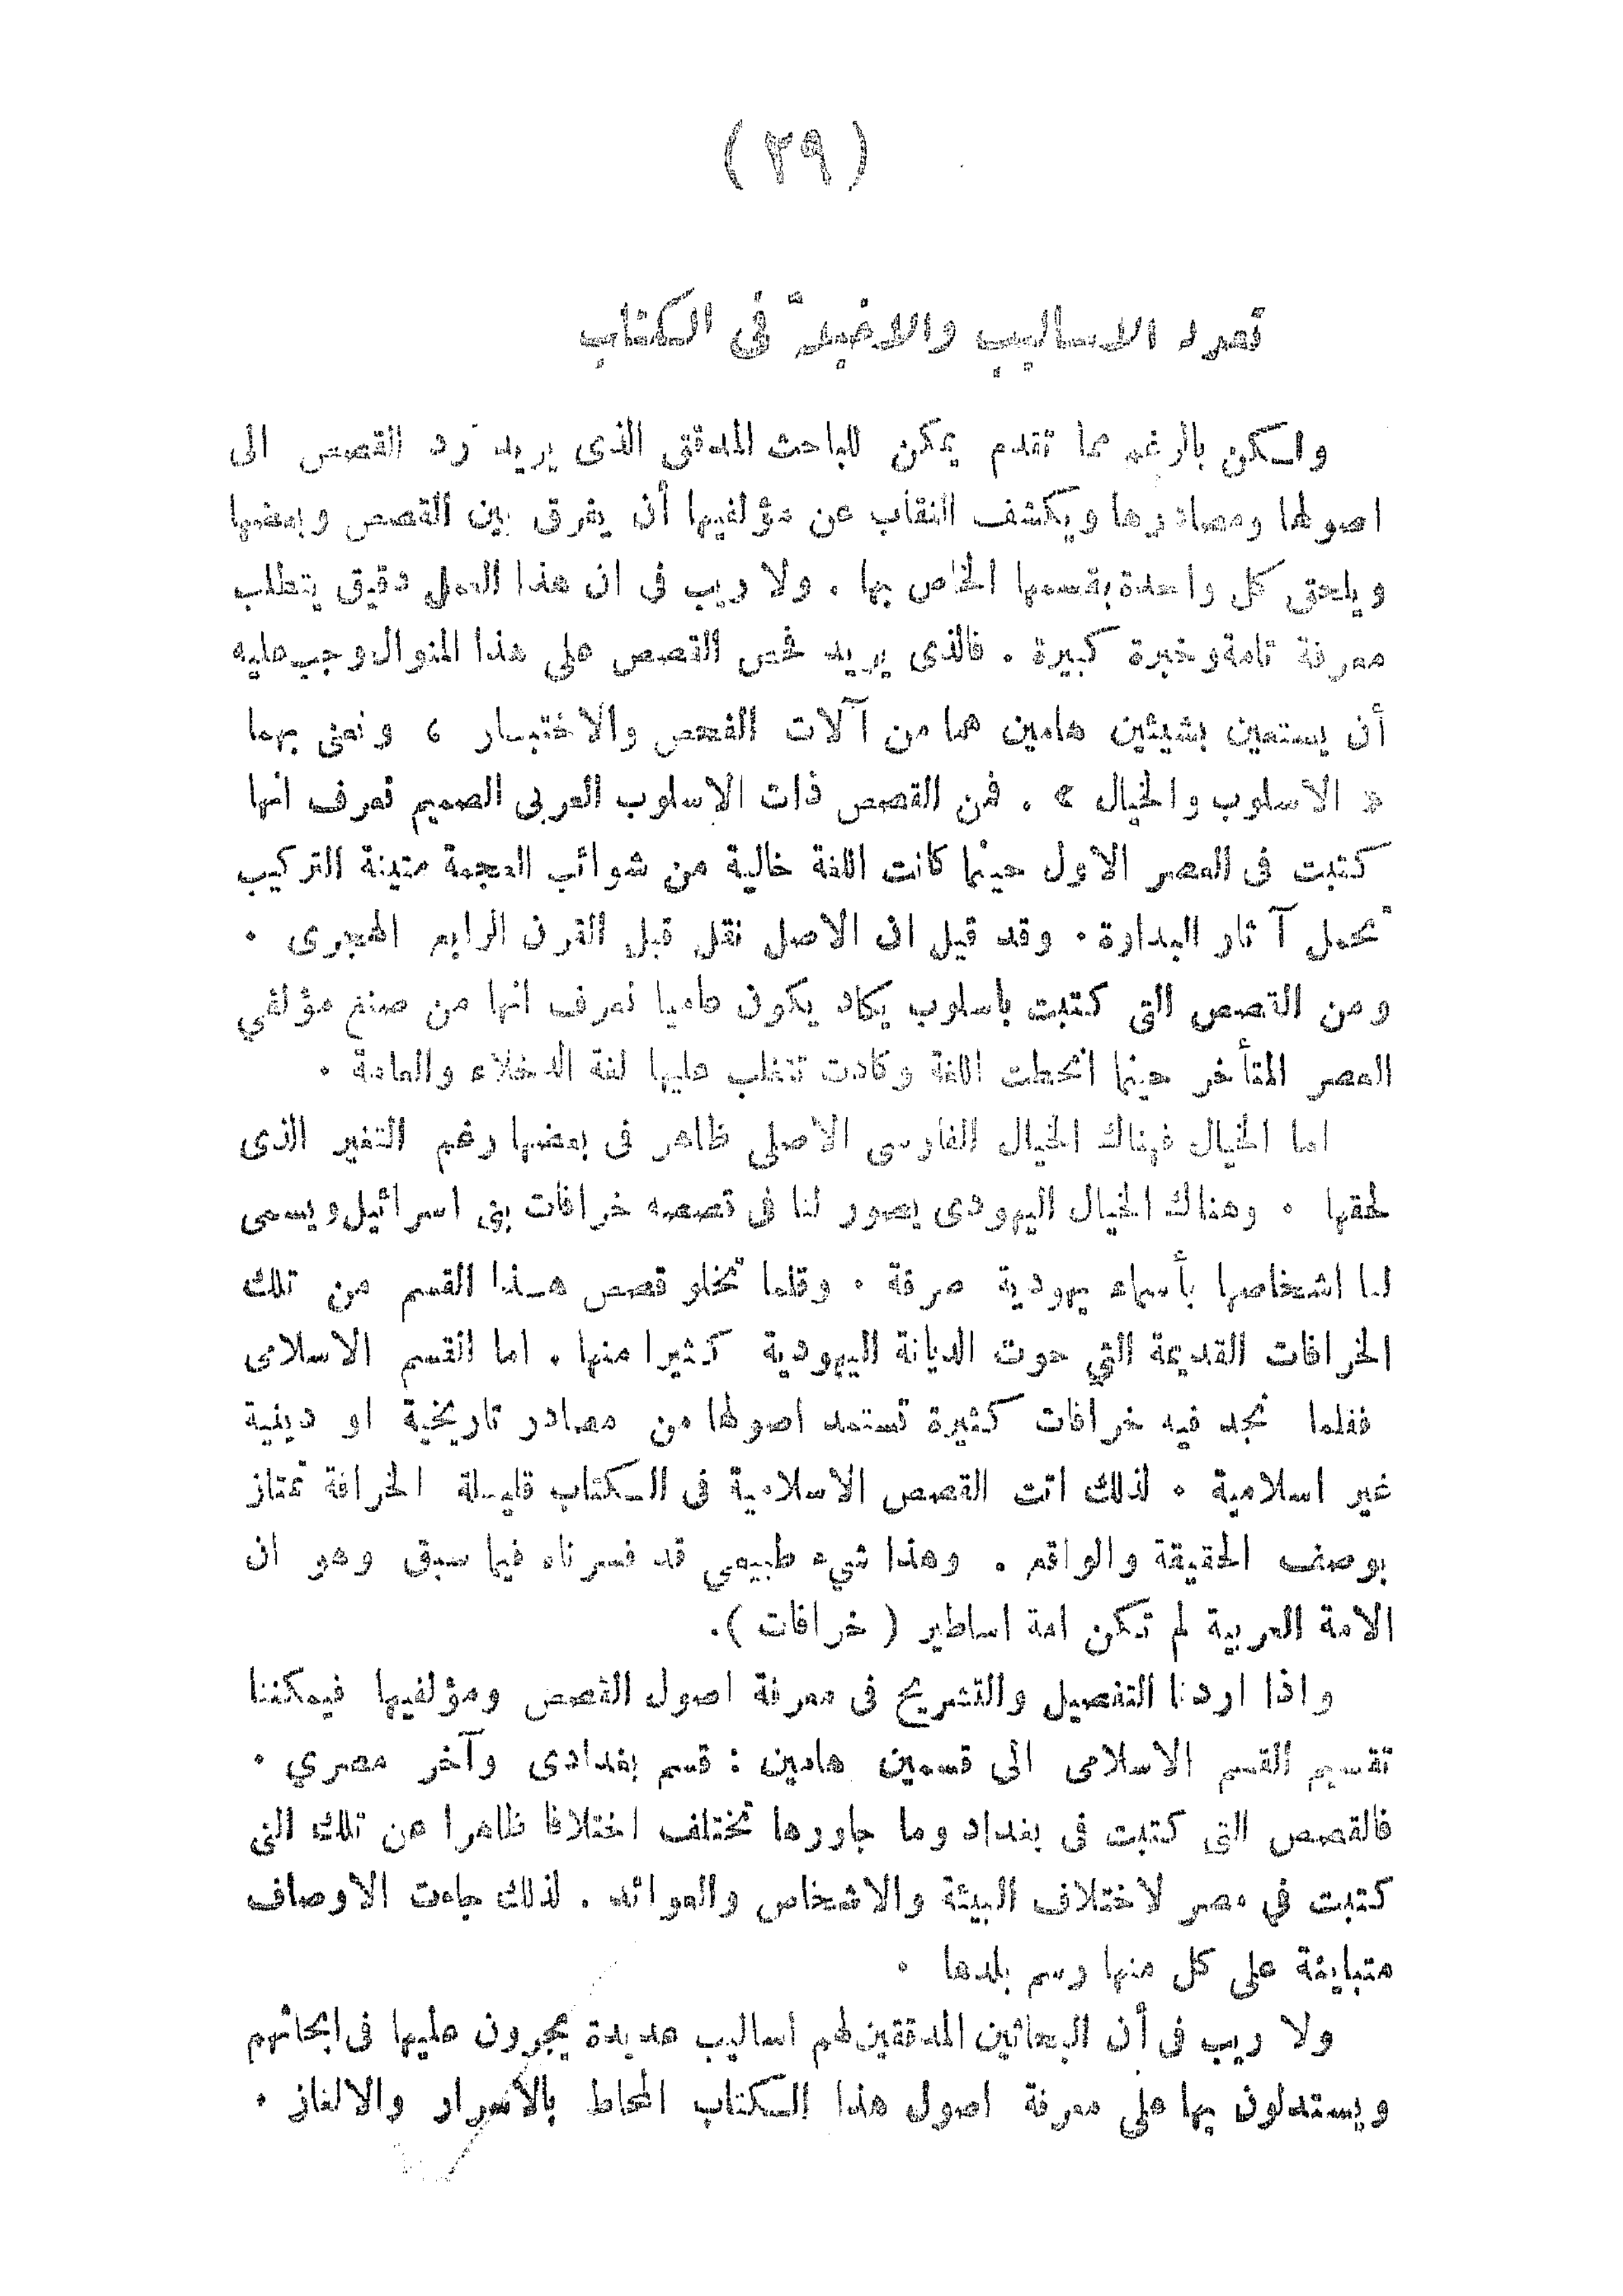 ( ٢٩ )
تعدد الاساليب والاخيلة فى الكتاب
ولكن بالرغم مما تقدم يمكن للباحث المدقق الذى يريد رد القصص الى
اصولها ومصادرها ويكشف النقاب عن مؤلفيها أن يفرق بين القصص وبعضها
ويلحق كل واحدة بقسمها الخاص بها . ولا ريب فى ان هذا العمل دقيق يتطلب
معرفة تامة وخبرة كبيرة . فالذى يريد فحص القصص على هذا المنوال وجب عليه
أن يستعين بشيئين هامين هما من آلات الفحص والاختبار ، ونعنى بهما
« الاسلوب والخيال » . فمن القصص ذات الاسلوب العربى الصميم نعرف انها
كتبت فى العصر الاول حينما كانت اللغة خالية من شوائب العجمة متينة التركيب
تحمل آثار البداوة . وقد قيل ان الاصل نقل قبل القرن الرابع الهجرى .
ومن القصص التى كتبت باسلوب يكاد يكون عاميا نعرف انها من صنع مؤلفي
العصر المتأخر حينما انحطت اللغة وكادت تتغلب عليها لغة الدخلاء والعامة .
اما الخيال فهناك الخيال الفارسى الاصلى ظاهر فى بعضها رغم التغير الذى
لحقها . وهناك الخيال اليهودى يصور لنا فى قصصه خرافات بنى اسرائيل ويسمى
لنا اشخاصها بأسماء يهودية صرفة . وقلما تخلو قصص هذا القسم من تلك
الخرافات القديمة التي حوت الديانة اليهودية كثيرا منها . اما القسم الاسلامى
فقلما نجد فيه خرافات كثيرة تستمد اصولها من مصادر تاريخية او دينية
غير اسلامية . لذلك اتت القصص الاسلامية فى الكتاب قليلة الخرافة تمتاز
بوصف الحقيقة والواقع . وهذا شيء طبيعي قد فسرناه فيما سبق وهو ان
الامة العربية لم تكن امة اساطير ( خرافات ) .
واذا اردنا التفصيل والتشريح فى معرفة اصول القصص ومؤلفيها فيمكننا
تقسيم القسم الاسلامى الى قسمين هامين : قسم بغدادى وآخر مصري .
فالقصص التى كتبت فى بغداد وما جاورها تختلف اختلافا ظاهرا عن تلك التى
كتبت في مصر لاختلاف البيئة والاشخاص والعوائد . لذلك جاءت الاوصاف
متباينة على كل منها وسم بلدها .
ولا ريب فى أن البحاثين المدققين لهم اساليب عديدة يجرون عليها فى ابحاثهم
ويستدلون بها على معرفة اصول هذا الكتاب المحاط بالأسرار والالغاز .